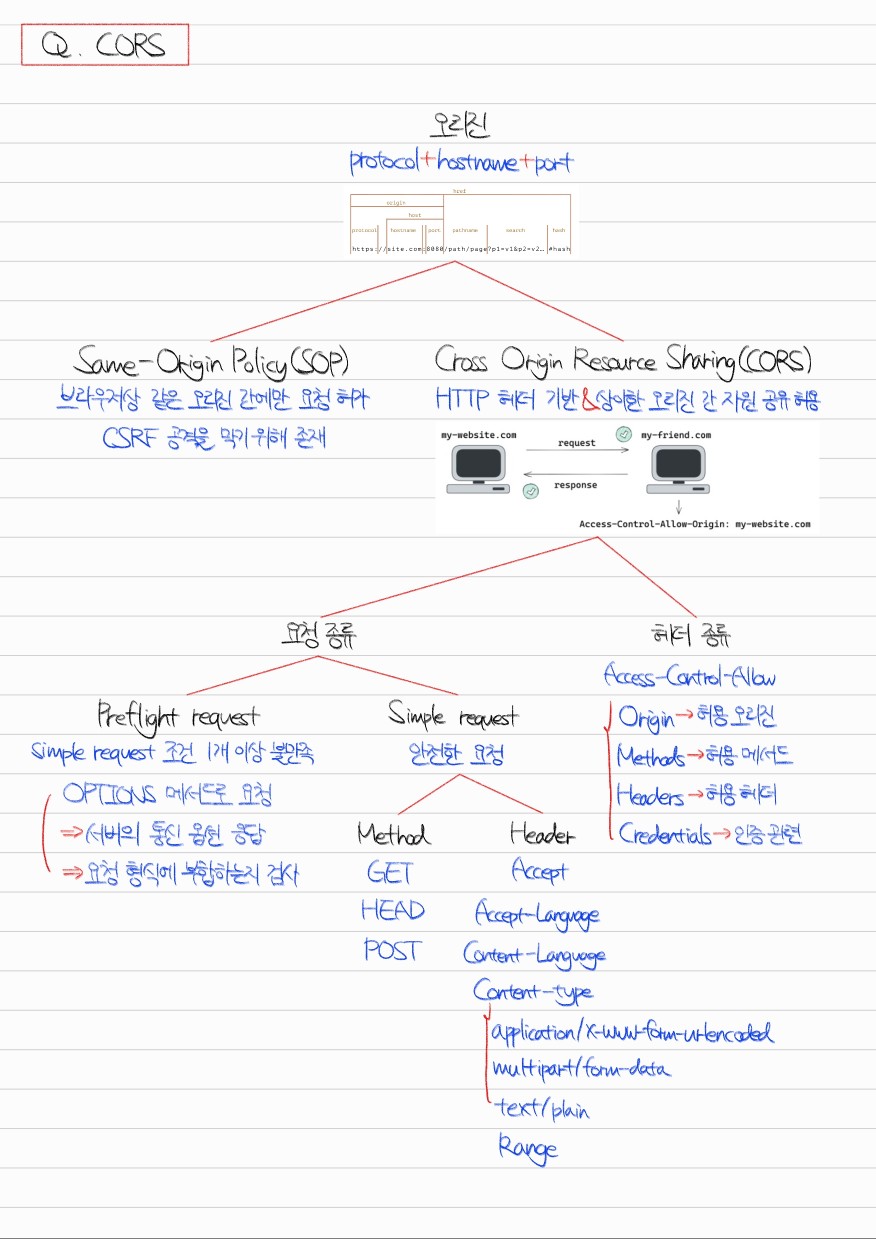 Q. CORS
오리진
protocol+hostname+port
href
origin
host
protocol hostname port pathname search hash
https://site.com:8080/path/page?p1=v1&p2=v2… #hash
Same-Origin Policy(SOP)
브라우저상 같은 오리진 간에만 요청 허가
CSRF 공격을 막기 위해 존재
Cross Origin Resource Sharing(CORS)
HTTP 헤더 기반&상이한 오리진 간 자원 공유 허용
my-website.com request my-friend.com
response
Access-Control-Allow-Origin: my-website.com
요청 종류
Preflight request
Simple request 조건 1개 이상 불만족
OPTIONS 메서드로 요청
⇒서버의 통신 옵션 응답
⇒요청 형식에 부합하는지 검사
Simple request
안전한 요청
Method
GET
HEAD
POST
Header
Accept
Accept-Language
Content-Language
Content-type
application/x-www-form-urlencoded
multipart/form-data
text/plain
Range
헤더 종류
Access-Control-Allow
Origin→허용 오리진
Methods→허용 메서드
Headers→허용 헤더
Credentials→인증 관련